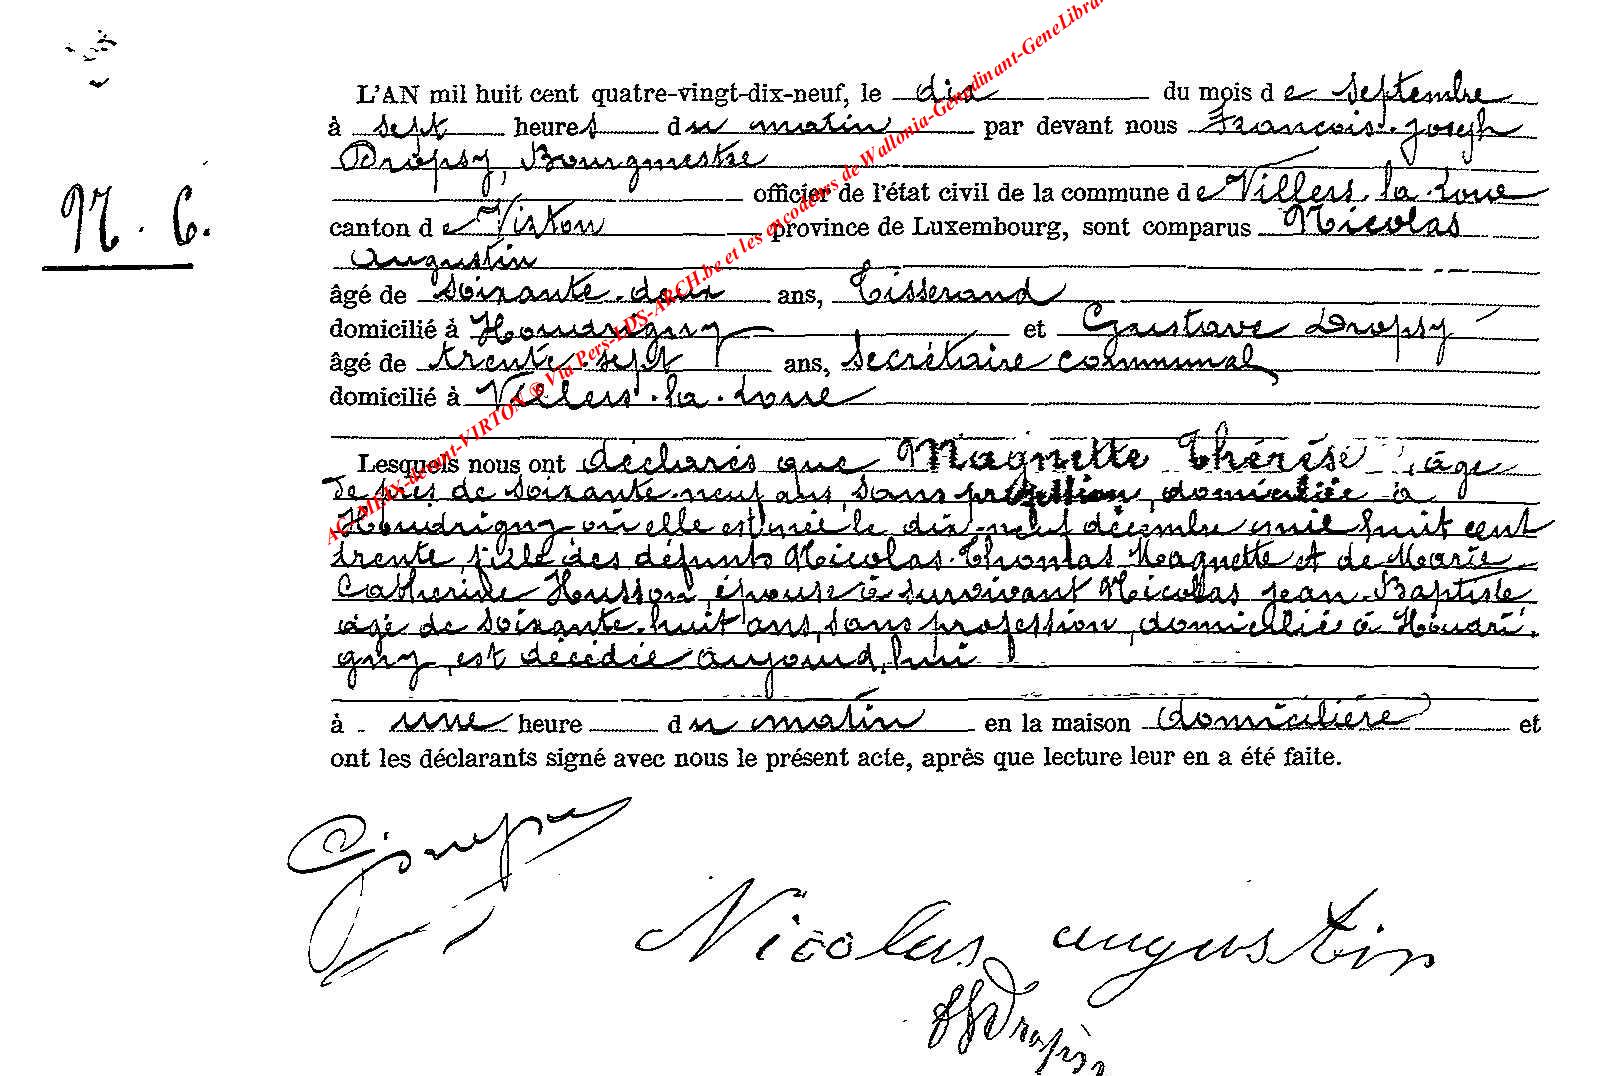 L'AN mil huit cent quatre-vingt-dix-neuf, le dix du mois de septembre
à sept heures du matin par devant nous François-Joseph
Dropsy, Bourgmestre
officier de l'état civil de la commune de Villers-la-Loue
N. 6.
canton de Virton province de Luxembourg, sont comparus Nicolas
Augustin
âgé de soixante-deux ans, Tisserand
domicilié à Houdrigny et Gustave Dropsy
âgé de trente-sept ans, secrétaire communal
domicilié à Villers-la-Loue
Lesquels nous ont déclarés que Magnette Thérèse âge
de près de soixante-neuf ans, sans profession, domiciliée à
Houdrigny où elle est née le dix-neuf décembre mil huit cent
trente, fille des défunts Nicolas-Thomas Magnette et de Marie
Catherine Husson, épouse à survivant Nicolas Jean-Baptiste
âgé de soixante-huit ans, sans profession, domicilié à Houdri-
gny, est décédée aujourd'hui
à une heure du matin en la maison domicilière et
ont les déclarants signé avec nous le présent acte, après que lecture leur en a été faite.
Nicolas augustin
Dropsy
via Pers-LDS-ARCH.be et les encodeurs de Wallonia-Genedinant-GeneLibra